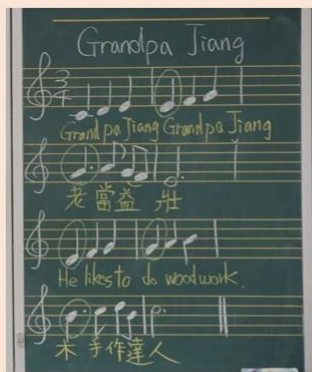 Grandpa Jiang
3/4
Grandpa Jiang Grandpa Jiang
老當益 壯
He likes to do woodwork.
木 手作達人